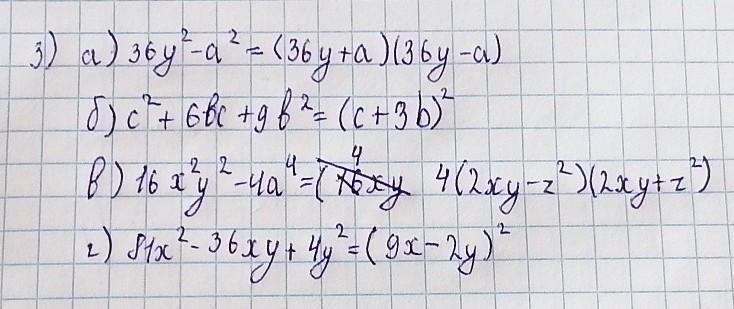 3) а) 36y² - a² = (36y + a)(36y - a)
б) c² + 6bc + 9b² = (c + 3b)²
в) 16x²y² - 4a⁴ = 4(2xy - z²)(2xy + z²)
г) 81x² - 36xy + 4y² = (9x - 2y)²